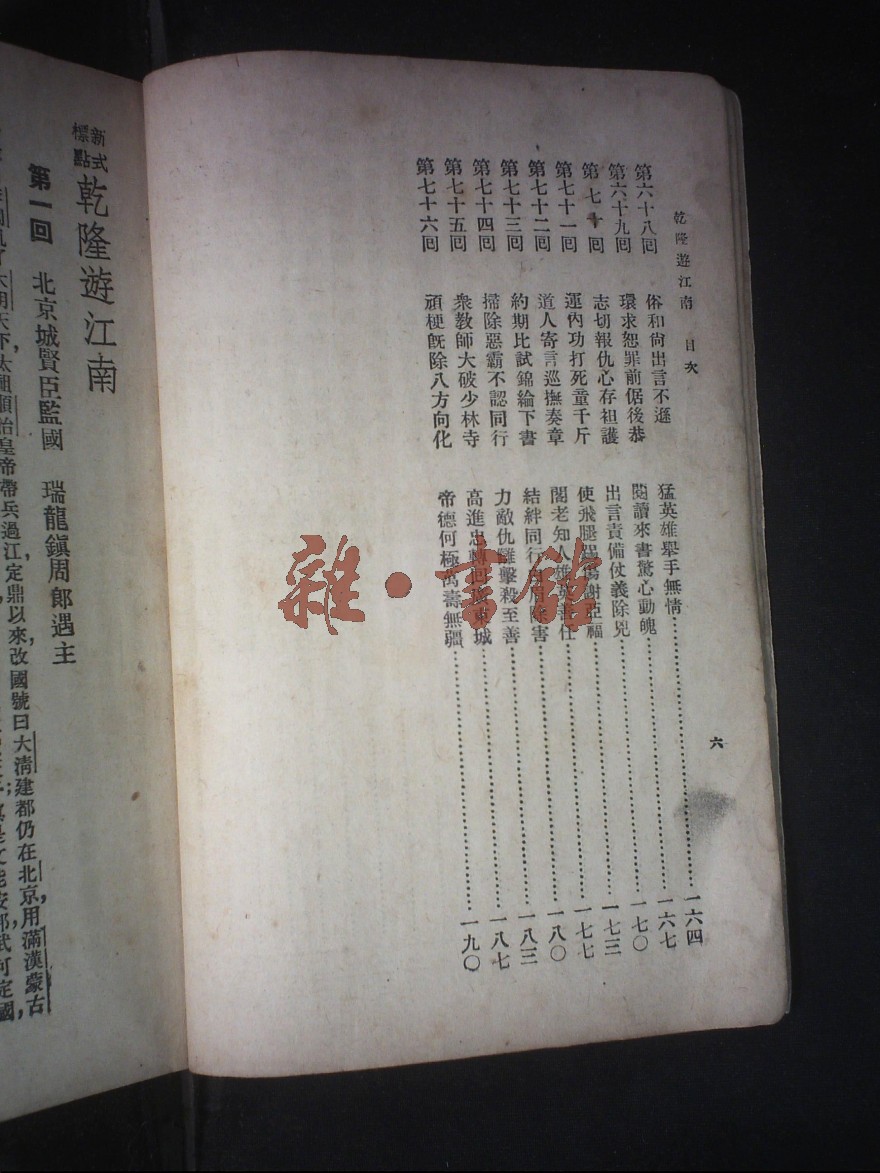 乾隆遊江南 目次
六
第六十八回 俗和尙出言不遜 猛英雄舉手無情 一六四
第六十九回 環求恕罪前倨後恭 閱讀來書驚心動魄 一六七
第七十回 志切報仇心存袒護 出言責備仗義除兇 一七〇
第七十一回 運內功打死童千斤 使飛腿踢傷謝亞福 一七三
第七十二回 道人寄言巡撫奏章 閣老知人雄英善任 一七七
第七十三回 約期比試錦綸下書 結絆同行 除害 一八〇
第七十四回 掃除惡霸不認同行 力敵仇讎擊殺至善 一八三
第七十五回 衆教師大破少林寺 高進忠轉回廣東城 一八七
第七十六回 頑梗旣除八方向化 帝德何極萬壽無疆 一九〇
新式標點 乾隆遊江南
第一回 北京城賢臣監國 瑞龍鎭周郎遇主
順治皇帝帶兵過江定鼎以來，改國號曰大淸，建都仍在北京，用滿漢蒙古
雜·書館